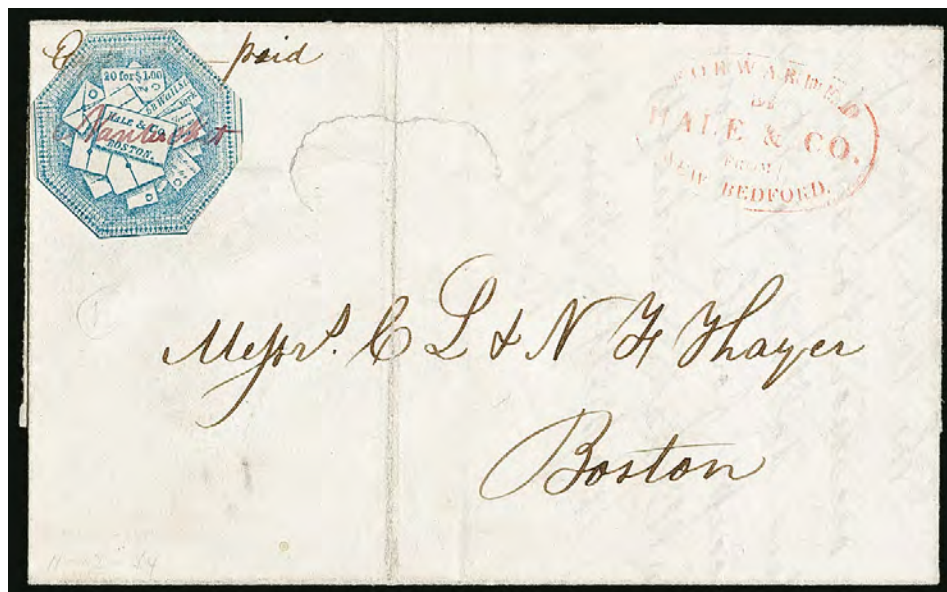 paid
20 for $1.00
HALE & CO.
BOSTON.
Nantucket
FORWARDED
BY
HALE & CO.
FROM
NEW BEDFORD.
Messrs. C L & N F Thayer
Boston